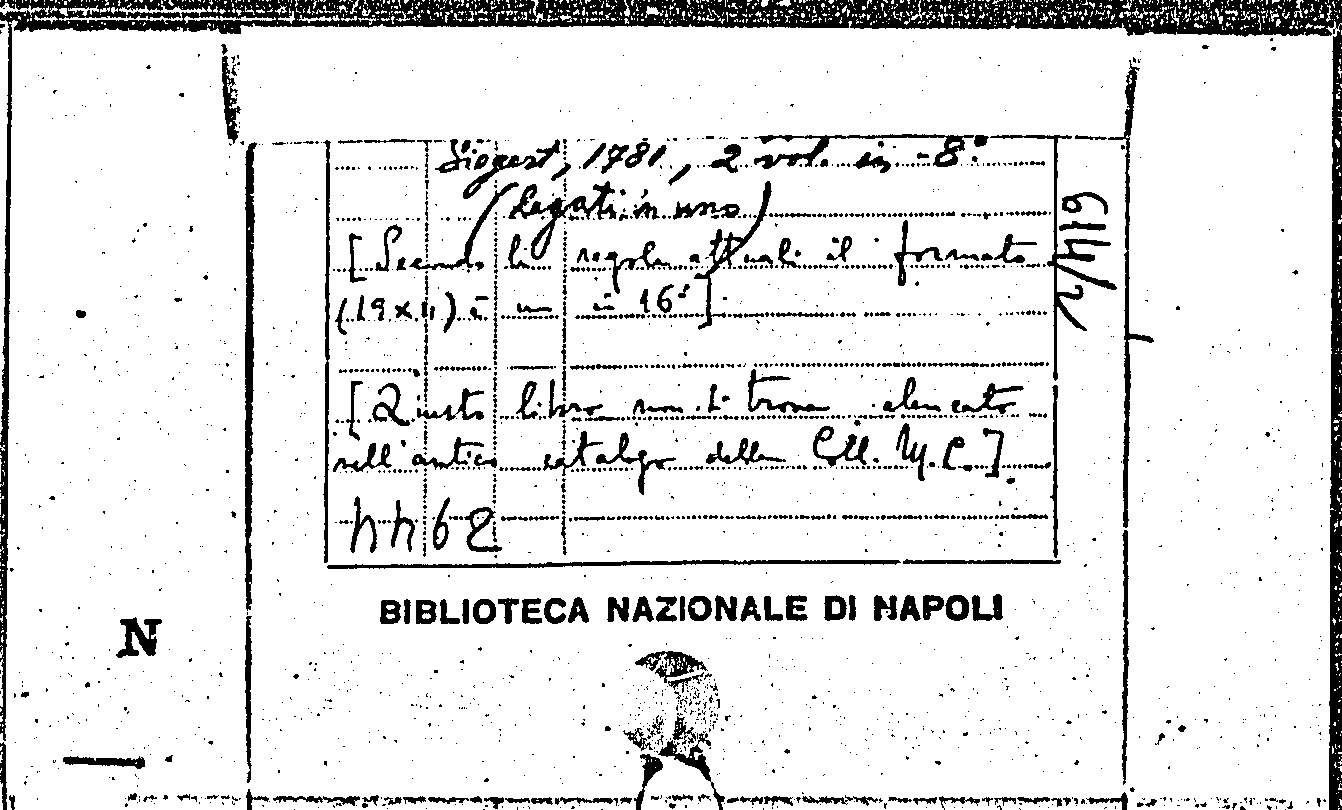 Siegert, 1781, 2 vol. in -8°
(legati in uno)
[Secondo le regole attuali il formato
(19x11) è un in 16°]
[Questo libro non si trova elencato
nell'antico catalogo della Coll. M.C.]
4462
619
BIBLIOTECA NAZIONALE DI NAPOLI
N